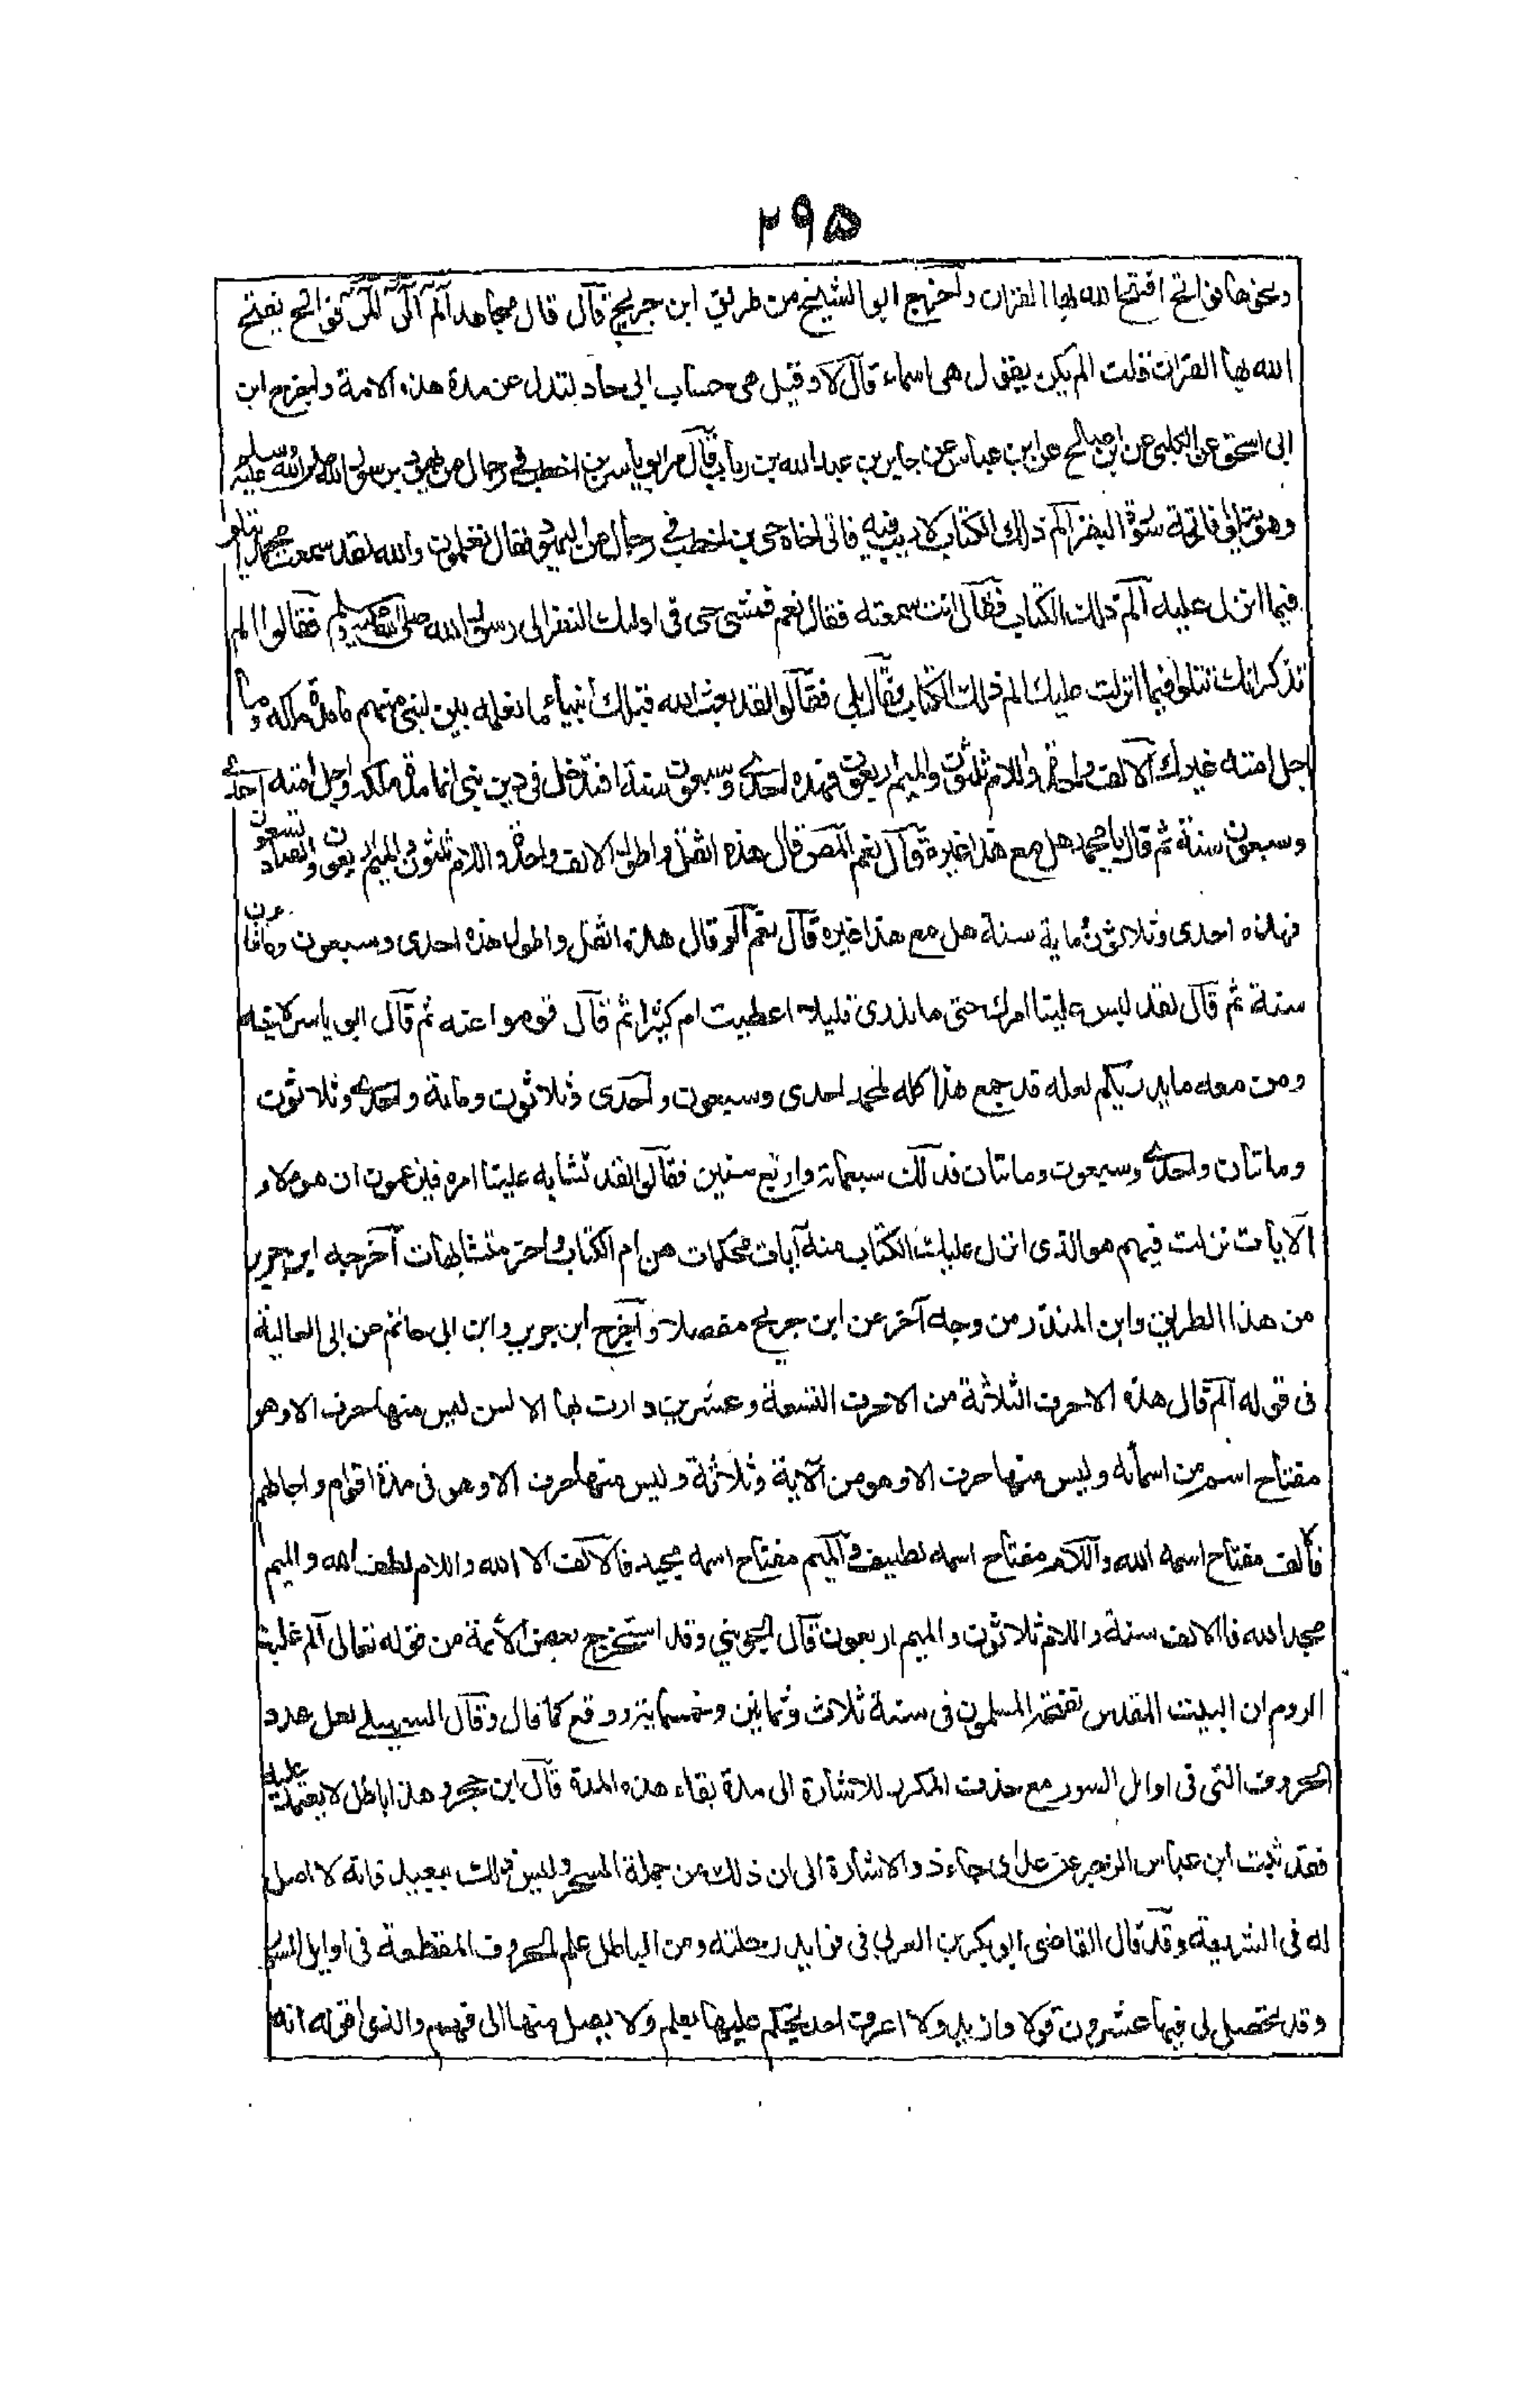 ٢٩٥
ونحوها فواتح افتتح الله بها القران واخرج ابو الشيخ من طريق ابن جريج قال قال مجاهد الم الر المر فواتح يفتتح
الله بها القران قلت الم يكن يقول هى اسماء قال لا وقيل هى حساب ابى جاد لتدل عن مدة هذه الامة واخرج ابن
ابى اسحق عن الكلبى عن ابى صالح عن ابن عباس عن جابر بن عبد الله بن رباب قال مر ابو ياسر بن اخطب فى رجال من يهود برسول الله صلى الله عليه وسلم
وهو يتلو فاتحة سورة البقر الم ذلك الكتاب لا ريب فيه فاتى اخاه حى بن اخطب فى رجال من اليهود فقال تعلمون والله لقد سمعت محمدا يتلو
فيما انزل عليه الم ذلك الكتاب فقال انت سمعته فقال نعم فمشى حى فى اوليك النفر الى رسول الله صلى الله عليه وسلم فقالوا الم
تذكر انك تتلوا فيما انزلت عليك الم ذلك الكتاب فقال بلى فقالوا لقد بعث الله قبلك أنبياء ما نعلمه بين لبنى منهم ما مدة ملكه وما
اجل امته غيرك الالف واحدة واللام ثلثون والميم اربعون فهذه احدى وسبعون سنة افتدخل فى دين نبى انما مدة ملكه واجل امته احدى
وسبعون سنة ثم قال يا محمد هل مع هذا غيره قال نعم المص قال هذه اثقل واطول الالف واحدة واللام ثلثون والميم اربعون والصاد تسعون
فهذه احدى وثلاثون ماية سنة هل مع هذا غيره قال نعم الر قال هذه اثقل واطول هذه احدى وسبعون ومائتا
سنة ثم قال لقد لبس علينا امرك حتى ما ندرى قليلا اعطيت ام كثيرا ثم قال قوموا عنه ثم قال ابو ياسر لاخيه
ومن معه ما يدريكم لعله قد جمع هذا كله لمحمد احدى وسبعون واحدى وثلاثون ومائة واحدى وثلاثون
ومائتان واحدى وسبعون ومائتان فذلك سبعمائة واربع سنين فقالوا لقد تشابه علينا امره فيزعمون ان هولاء
الايات نزلت فيهم هو الذى انزل عليك الكتاب منه آيات محكمات هن ام الكتاب واخر متشابهات اخرجه ابن جرير
من هذا الطريق وابن المنذر من وجه آخر عن ابن جريج مفصلا واخرج ابن جرير وابن ابى حاتم عن ابى العالية
فى قوله الم قال هذه الاحرف الثلاثة من الاحرف التسعة وعشرين دارت بها الالسن ليس منها حرف الا وهو
مفتاح اسم من اسمائه وليس منها حرف الا وهو من آلاية وثلاثة وليس منها حرف الا وهو فى مدة اقوام واجالهم
فالالف مفتاح اسمه الله واللام مفتاح اسمه لطيف والميم مفتاح اسمه مجيد فالالف الا الله واللام لطف الله والميم
مجد الله فاالالف سنة واللام ثلاثون والميم اربعون قال الجوينى وقد استخرج بعض الأئمة من قوله تعالى الم غلبت
الروم ان البيت المقدس تفتحه المسلمون فى سنة ثلاث وثمانين وخمسماية ووقع كما قال وقال السهيلى لعل عدد
الحروف التى فى اوايل السور مع حذف المكرر للاشارة الى مدة بقاء هذه المدة قال ابن حجر وهذا باطل لا يعتمد عليه
فقد ثبت ابن عباس الزجر عن عد ابى جاد والاشارة الى ان ذلك من جملة السحر وليس ذلك ببعيد فانه لا اصل
له فى الشريعة وقد قال القاضى ابو بكر بن العربى فى فوايد رحلته ومن الباطل علم الحروف المقطعة فى اوايل السور
وقد تحصل لى فيها عشرون قولا وازيد ولا اعرف احد يحكم عليها بعلم ولا يصل منها الى فهم والذى اقوله انه